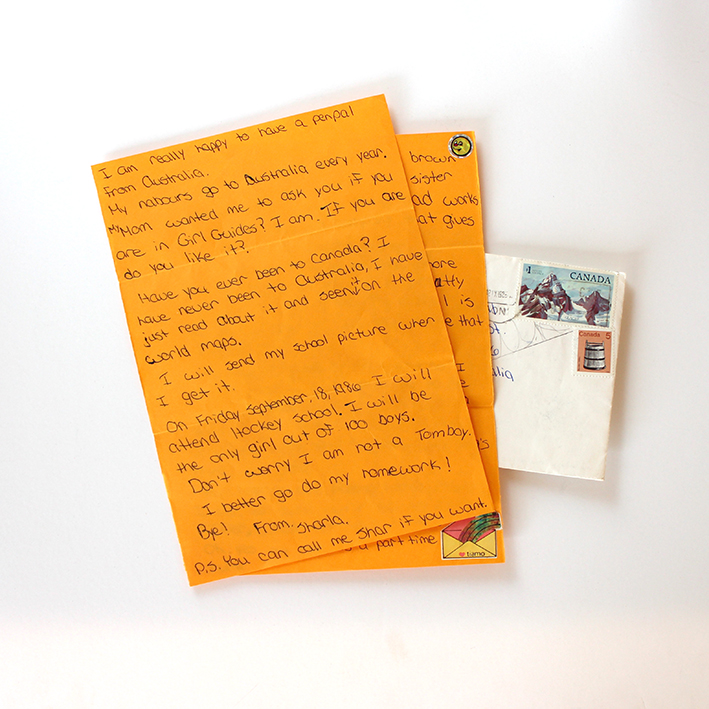 I am really happy to have a penpal
from Australia.
My nabours go to Australia every year.
My Mom wanted me to ask you if you
are in Girl Guides? I am. If you are
do you like it?
Have you ever been to Canada? I
have never been to Australia, I have
just read about it and seen it on the
world maps.
I will send my school picture when
I get it.
On Friday September, 18, 1986 I will
attend Hockey school. I will be
the only girl out of 100 boys.
Don't worry I am not a Tomboy.
I better go do my homework!
Bye! From, Sharla.
P.S. You can call me Shar if you want.
brown
sister
works
gives
is
that
I
a part time
$1 CANADA
Canada 5